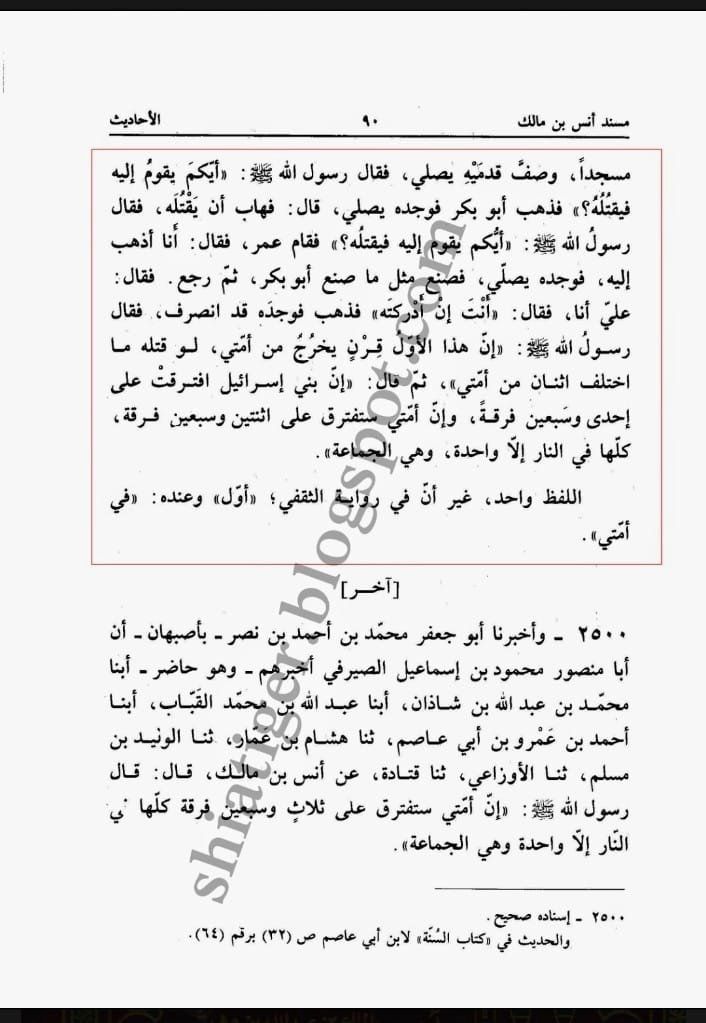 مسند أنس بن مالك ٩٠ الأحاديث
مسجداً، وصفَّ قدمَيْهِ يصلي، فقال رسول الله ﷺ: «أيّكمَ يقومُ إليه
فيقتُلُهُ؟» فذهب أبو بكر فوجده يصلي، قال: فهاب أن يَقْتُلَه، فقال
رسولُ الله ﷺ: «أيُّكم يقوم إليه فيقتلُه؟» فقام عمر، فقال: أَنا أذهب
إليه، فوجده يصلّي، فصنع مثل ما صنع أبو بكر، ثمّ رجع. فقال:
عليّ أنا، فقال: «أَنْتَ إنْ أَدْركتَه» فذهب فوجدَه قد انصرف، فقال
رسولُ الله ﷺ: «إنّ هذا الأوّلُ قِرْنٍ يخرُجُ من أمّتي، لو قتله ما
اختلف اثنان من أمّتي»، ثمّ قال: «إنّ بني إسرائيل افترقتْ على
إحدى وسَبعين فرقةً، وإنّ أمّتي ستفترق على اثنتين وسبعين فرقة،
كلّها في النار إلاّ واحدة، وهي الجماعة».
اللفظ واحد، غير أنّ في رواية الثقفي؛ «أوّل» وعنده: «في
أمّتي».
[آخر]
٢٥٠٠ ـ وأخبرنا أبو جعفر محمّد بن أحمد بن نصر ـ بأصبهان ـ أن
أبا منصور محمود بن إسماعيل الصيرفي أخبرهم ـ وهو حاضر ـ أبنا
محمّد بن عبد الله بن شاذان، أبنا عبد الله بن محمّد القَبّاب، أبنا
أحمد بن عَمْرو بن أبي عاصم، ثنا هشام بن عَمّار، ثنا الوليد بن
مسلم، ثنا الأوزاعي، ثنا قتادة، عن أنس بن مالك، قال: قال
رسول الله ﷺ: «إنّ أمّتي ستفترق على ثلاثٍ وسبعين فرقة كلّها في
النّار إلاّ واحدة وهي الجماعة».
٢٥٠٠ ـ إسناده صحيح.
والحديث في «كتاب السُنّة» لابن أبي عاصم ص (٣٢) برقم (٦٤).
shiatiger.blogspot.com